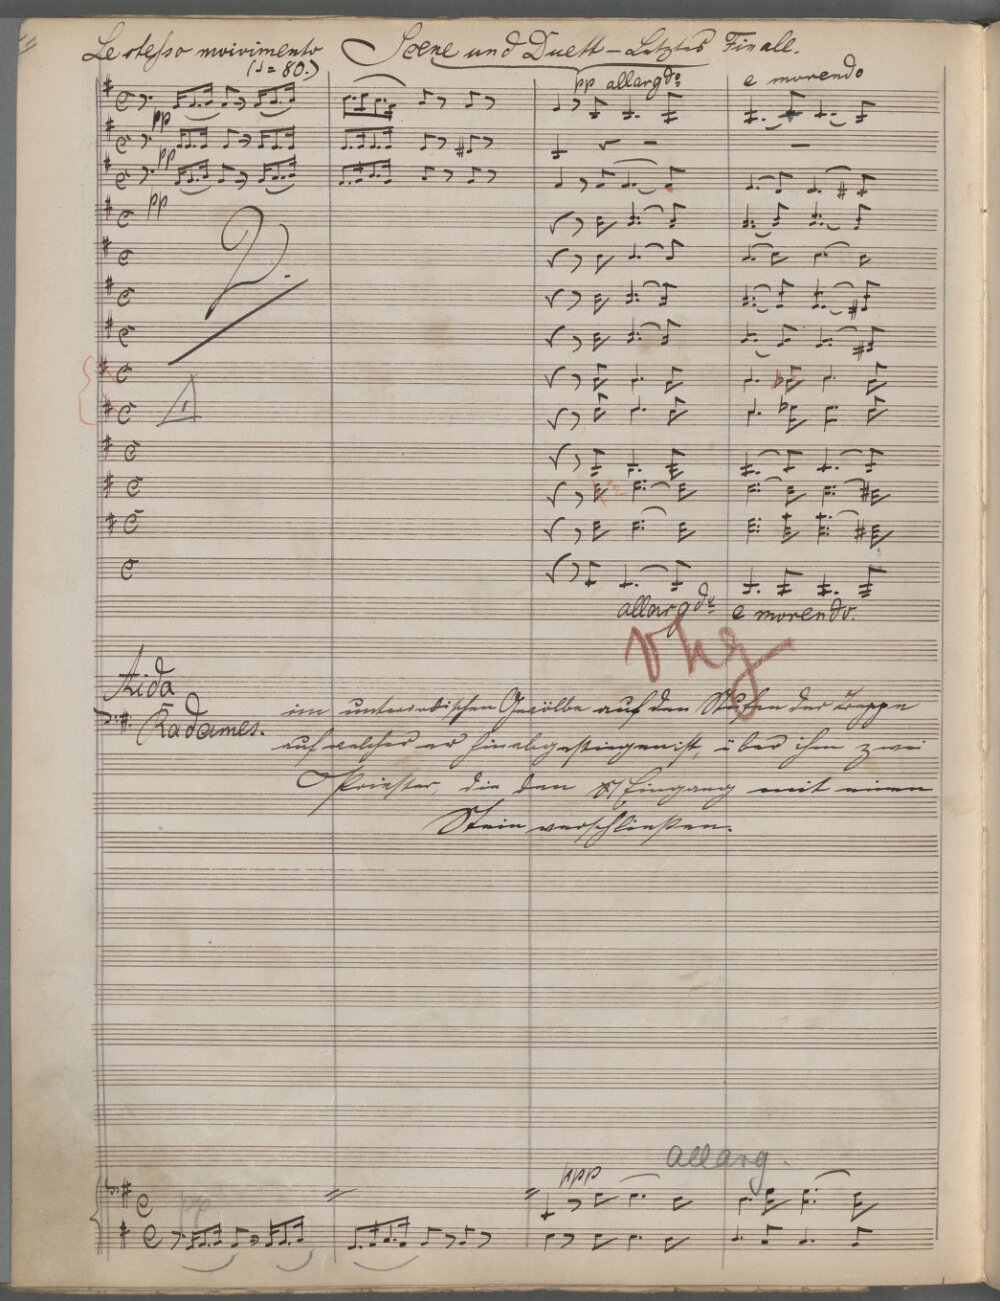 Lo stesso movimento Scene und Duett – Letztes Finale.
(♩=80.)
pp allargdo e morendo
pp
pp
pp
2.
1
allargdo e morendo.
vhg
Aida
Radames. im unterirdischen Gewölbe auf den Stufen der Treppe
auf welcher er hinabgestiegen ist, über ihm zwei
Priester, die den Eingang mit einem
Stein verschließen.
allarg.
ppp
pp